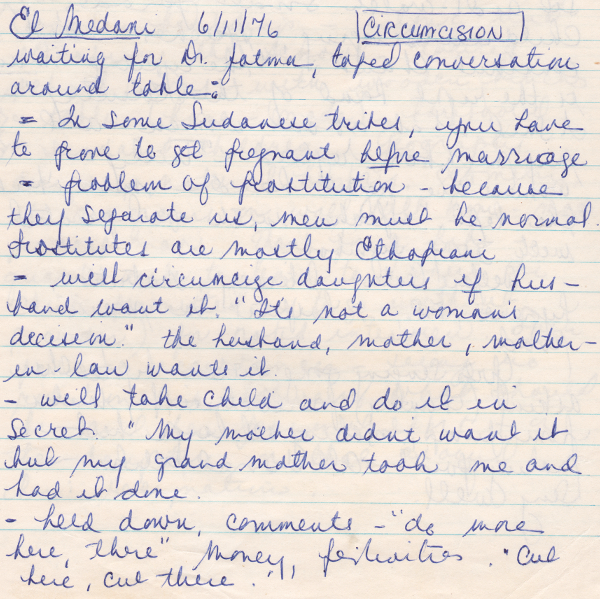 El Medani 6/11/76 CIRCUMCISION
waiting for Dr. Fatma, taped conversation
around table:
- In some Sudanese tribes, you have
to prove to get pregnant before marriage
- problem of prostitution - because
they separate us, men must be normal.
Prostitutes are mostly Ethopiani
- will circumcize daughters if hus-
band want it. "It's not a woman's
decision." the husband, mother, mother-
in-law wants it.
- will take child and do it in
secret. "My mother didn't want it
but my grand mother took me and
had it done.
- held down, comments - "do more
here, there" Money, festivities. "Cut
here, cut there."